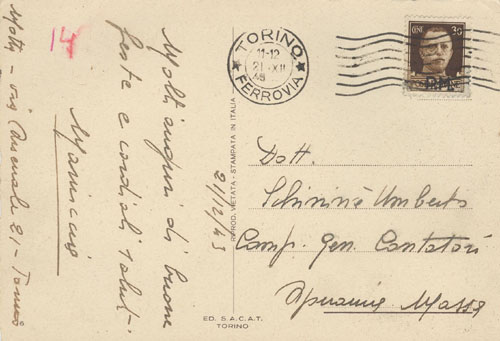 14
Molti auguri di buone
feste e cordiali saluti
21/12/43
Mitt - Via Arsenale 21 - Torino
TORINO
FERROVIA
11-12
21 . XII
CENT 30
RIPROD. VIETATA - STAMPATA IN ITALIA
Dott.
Schininà Umberto
Comp. Gen. Cantatori
Apuania Massa
ED. S.A.C.A.T.
TORINO